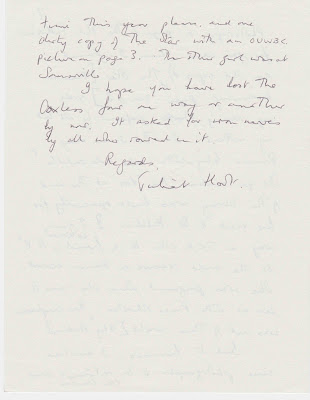 time this year please, and one
dirty copy of The Star with an OUWBC
picture on page 3. The other girl was at
Somerville
I hope you have lost the
Coxless four one way or another
by now. It asked for worn nerves
by all who rowed in it
Regards,
Juliet